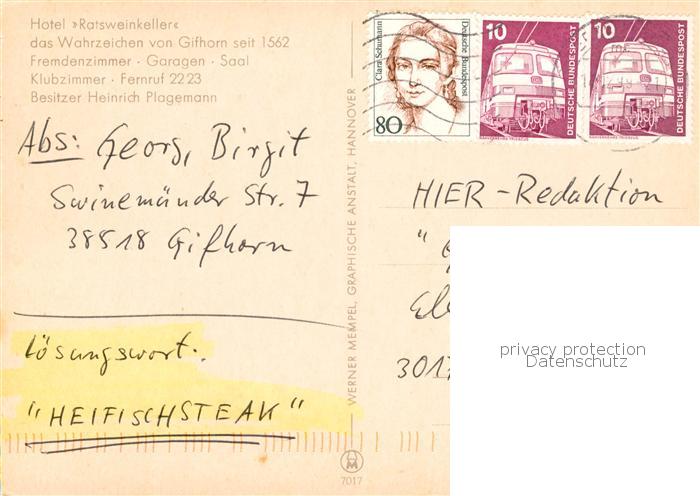 Hotel »Ratsweinkeller«
das Wahrzeichen von Gifhorn seit 1562
Fremdenzimmer · Garagen · Saal
Klubzimmer · Fernruf 22 23
Besitzer Heinrich Plagemann
Abs: Georg, Birgit
Swinemünder Str. 7
38518 Gifhorn
Lösungswort:
"HEIFISCHSTEAK"
WERNER MEMPEL, GRAPHISCHE ANSTALT, HANNOVER
7017
Clara Schumann
Deutsche Bundespost
80
10
DEUTSCHE BUNDESPOST
10
DEUTSCHE BUNDESPOST
HIER-Redaktion
3017
privacy protection
Datenschutz